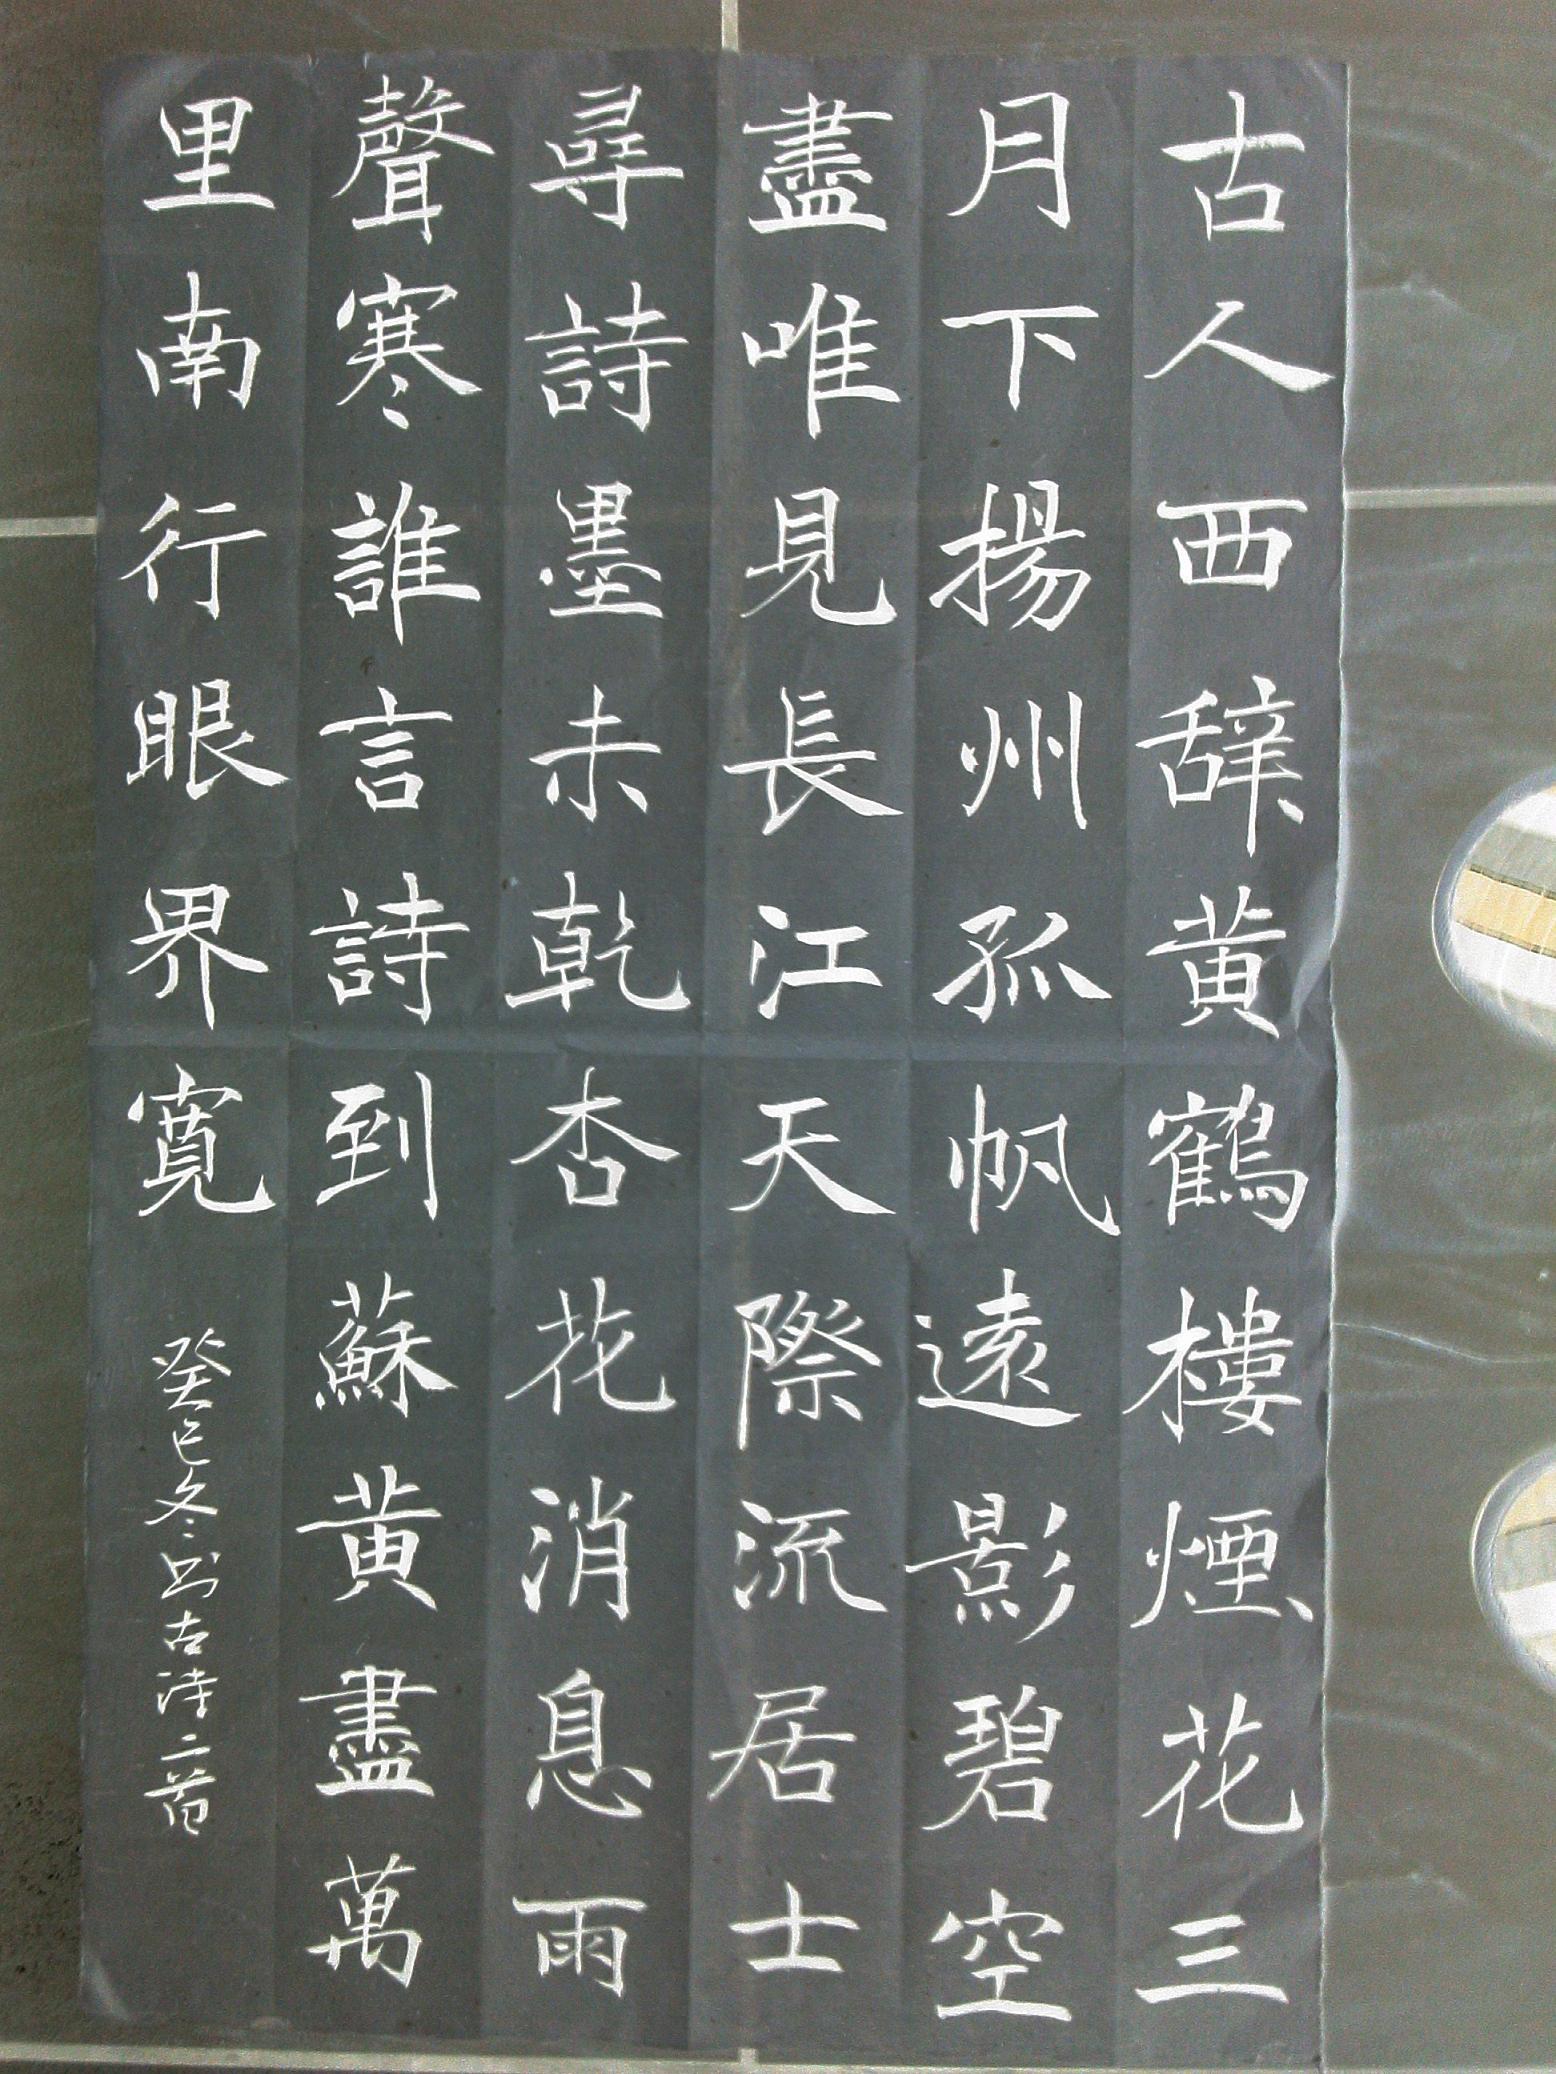 古人西辞黄鶴樓煙花三
月下揚州孤帆遠影碧空
盡唯見長江天際流居士
尋詩墨未乾杏花消息雨
聲寒誰言詩到蘇黄盡萬
里南行眼界寬
癸巳冬书古诗二首